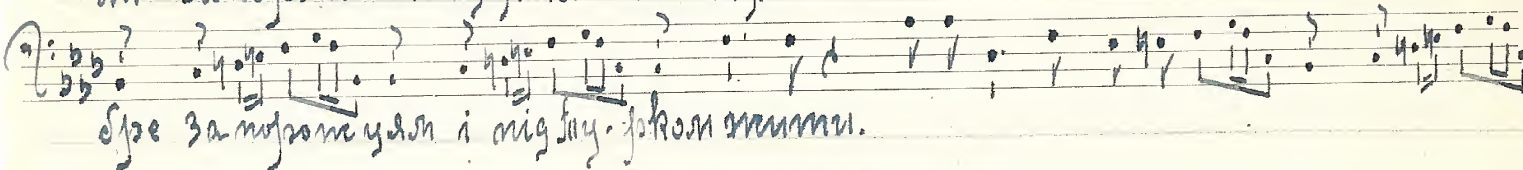 бре запорожцям і під ту-рком жити.